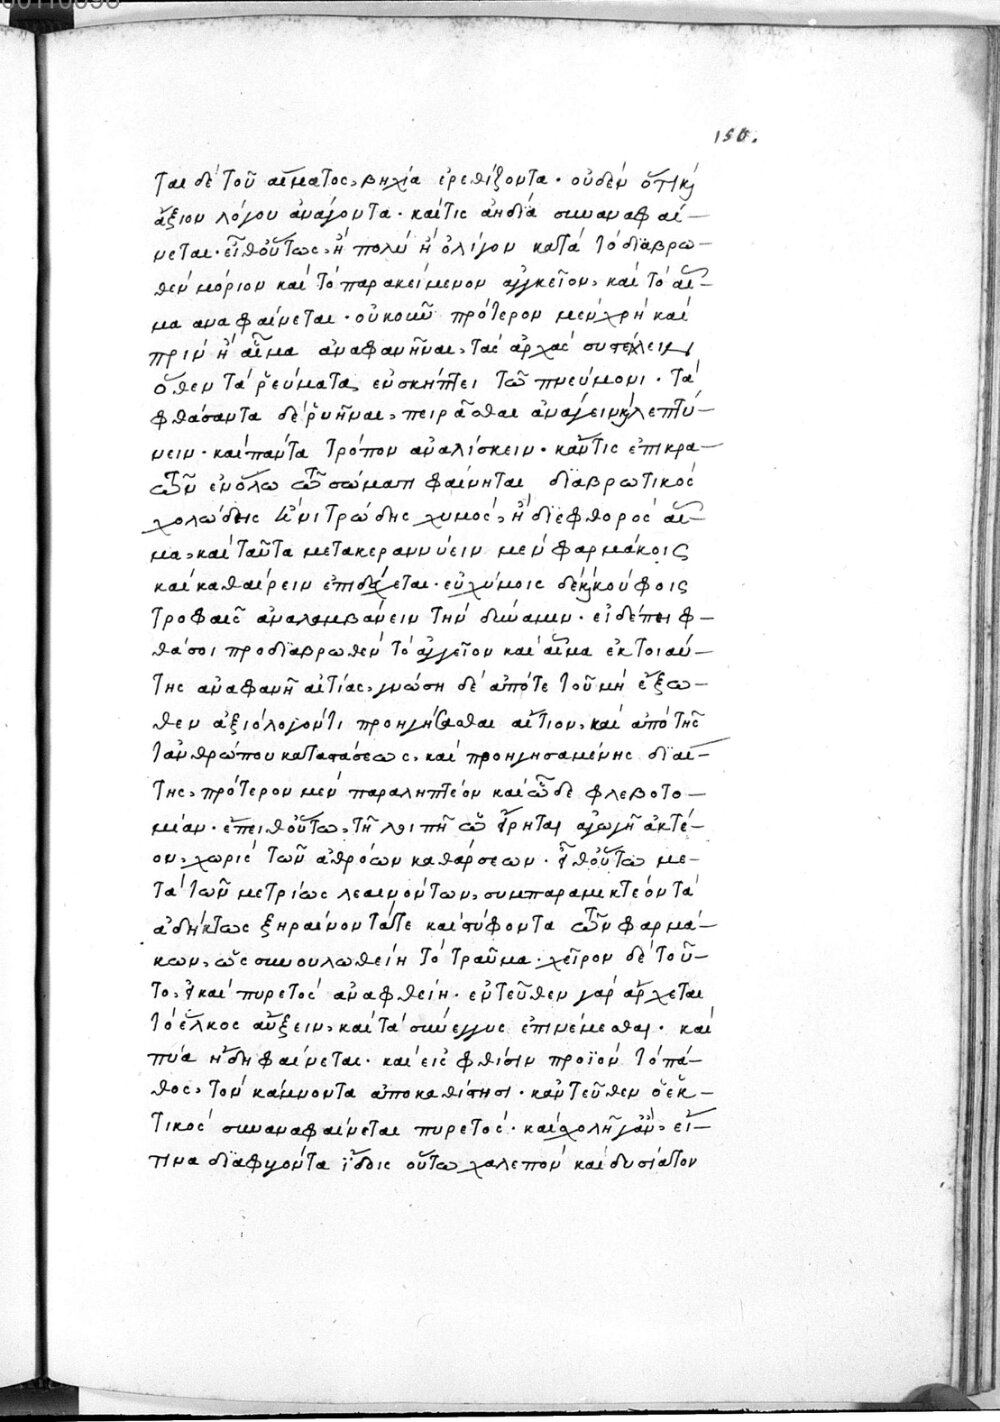 150.
ται δὲ τοῦ αἵματος, βηχία ἐρεθίζοντα· οὐδὲν ὅτι καὶ
ἄξιον λόγου ἀνάγοντα· καί τις ἀηδία συναναφαί-
νεται· εἶθ οὕτως, ἢ πολὺ ἢ ὀλίγον κατὰ τὸ διαβρω-
θὲν μόριον καὶ τὸ παρακείμενον ἀγγεῖον, καὶ τὸ αἷ-
μα αναφαίνεται· οὐκοῦν πρότερον μὲν χρὴ καὶ
πρὶν ἢ αἷμα ἀναφανῆναι, τὰς ἀρχὰς
ὅθεν τὰ ῥεύματα ἐνσκήπτει τῶ πνεύμονι· τὰ
φθάσαντα δὲ ῥυῆναι, πειρᾶσθαι ἀνάγειν καὶ λεπτύ-
νειν· καὶ πάντα τρόπον ἀναλίσκειν· κἄν τις ἐπικρα-
τῶν ἐν ὅλω τῶ σώματι φαίνηται διαβρωτικὸς
χολώδης ἢ νιτρώδης χυμὸς, ἢ διεφθορὸς αἷ-
μα, καὶ ταῦτα μετακεραννύειν μὲν φαρμάκοις
καὶ καθαίρειν ἐπιδέχεται· εὐχύμοις δὲ καὶ κούφοις
τροφαῖς ἀναλαμβάνειν τὴν δύναμιν· εἰ δέ που φ-
θάσοι προδιαβρωθὲν τὸ ἀγγεῖον καὶ αἷμα ἐκ τοιαύ-
της ἀναφανῆ αἰτίας, γνώση δὲ ἀπό τε τοῦ μὴ ἔξω-
θεν ἀξιόλογόν τι προηγήσασθαι αἴτιον, καὶ ἀπὸ τῆς
τἀνθρώπου καταστάσεως, καὶ προηγησαμένης διαί-
της, πρότερον μὲν παραληπτέον καὶ ὧδε φλεβοτο-
μίαν· ἔπειθ οὕτω, τῆ λοιπῆ ὡς εἴρηται ἀγωγῆ ἀκτέ-
ον, χωρὶς τῶν ἀθρόων καθάρσεων· εἶθ οὕτω με-
τὰ τῶν μετρίως λεαινόντων, συμπαραμικτέον τὰ
ἀδήκτως ξηραίνοντά τε καὶ στύφοντα τῶν φαρμά-
κων, ὡς συνουλωθείη τὸ τραῦμα· χεῖρον δὲ τοῦ-
το, εἰ καὶ πυρετὸς ἀναφθείη· ἐντεῦθεν γὰρ ἄρχεται
τὸ ἕλκος αὔξειν, καὶ τὰ σύνεγγυς ἐπινέμεσθαι· καὶ
πύα ἤδη φαίνεται· καὶ εἰς φθίσιν προϊὸν τὸ πά-
θος, τὸν κάμνοντα ἀποκαθίστησι· κἀντεῦθεν ὁ ἑκ-
τικὸς συναναφαίνεται πυρετός· καὶ χολῆ γοῦν, εἴ-
τινα διαφυγόντα ἴδοις οὕτω χαλεπὸν καὶ δυσίατον